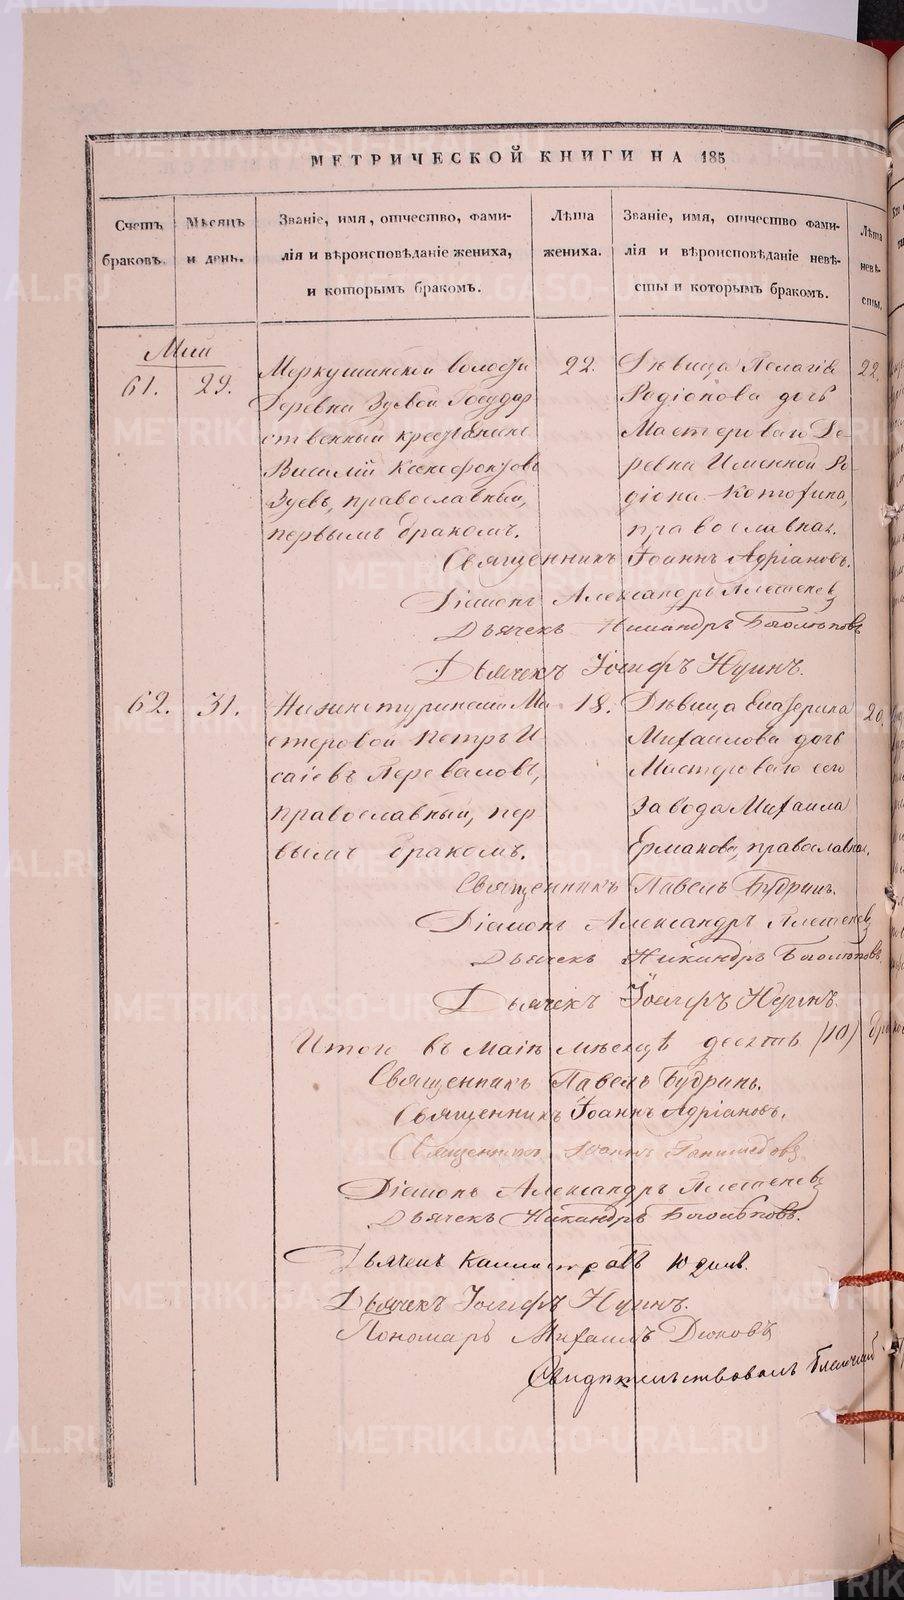 МЕТРИЧЕСКОЙ КНИГИ НА 185
Счетъ браковъ.
Мѣсяцъ и день.
Званіе, имя, отчество, фами-
лія и вѣроисповѣданіе жениха,
и которымъ бракомъ.
Лѣта жениха.
Званіе, имя, отчество фами-
лія и вѣроисповѣданіе невѣ-
сты и которымъ бракомъ.
Лѣта невѣ-
сты.
Маи
61. 29.
Меркушинской волости
деревни Зуевой Государ
ственный крестьянинъ
Василій Ксенофонтовъ
Зуевъ, православный,
первымъ бракомъ.
22.
Дѣвица Пелагія
Родіонова дочь
Мастероваго Де-
ревни Именной Ро-
діона Котофина,
православная.
22.
Священникъ Іоаннъ Адріановъ.
Діаконъ Александръ
Дьячекъ Никандръ Боголюповъ
Дьячекъ Іосифъ
62. 31.
Нижнетуринскій Ма
стеровой Петръ И
саіевъ Переваловъ,
православный, пер
вымъ бракомъ.
18.
Дѣвица Екатерина
Михаилова дочь
Мастероваго сего
Завода Михаила
Ермакова, православная.
20.
Священникъ Павелъ Будринъ.
Діаконъ Александръ
Дьячекъ Никандръ Боголюповъ.
Дьячекъ Іосифъ
Итого въ Маіѣ мѣсяцѣ десять (10) брако
Священникъ Павелъ Будринъ.
Священникъ Іоаннъ Адріановъ.
Священникъ Іоаннъ
Діаконъ Александръ
Дьячекъ Никандръ Боголюповъ.
Дьячекъ Каллистратъ Юдинъ.
Дьячекъ Іосифъ
Пономарь Михаилъ Дюковъ
Свидѣтельствовалъ
METRIKI.GASO-URAL.RU